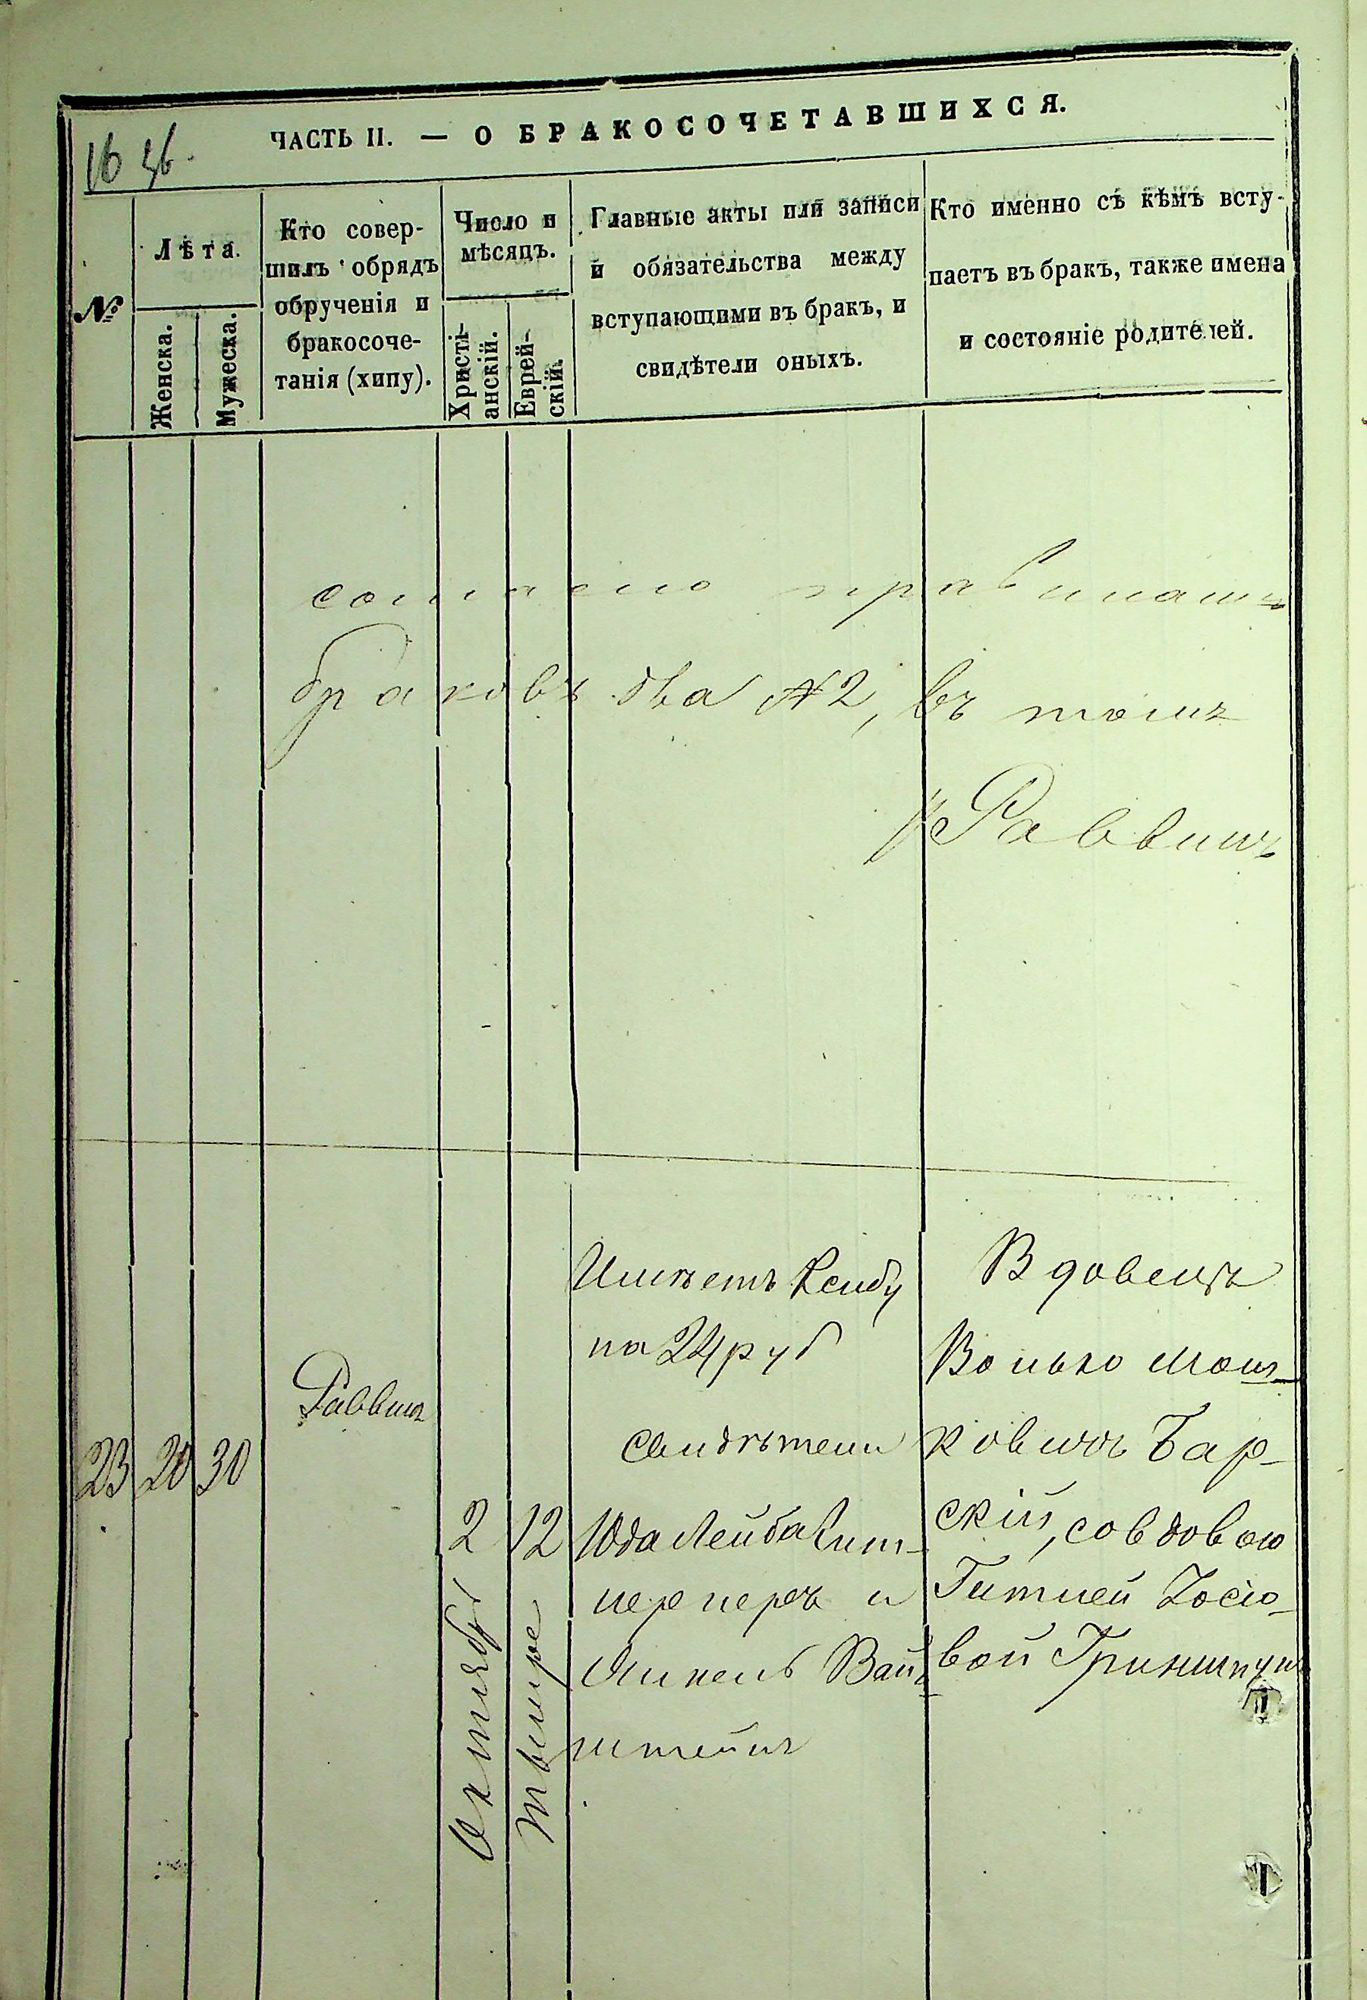 ЧАСТЬ II. — О БРАКОСОЧЕТАВШИХСЯ.
№
Лѣта.
Женска.
Мужеска.
Кто совер-
шилъ обрядъ
обрученія и
бракосоче-
танія (хипу).
Число и
мѣсяцъ.
Христі-
анскій.
Еврей-
скій.
Главные акты или записи
и обязательства между
вступающими въ бракъ, и
свидѣтели оныхъ.
Кто именно съ кѣмъ всту-
паетъ въ бракъ, также имена
и состояніе родителей.
браковъ два № 2, въ томъ
Раввинъ
23
20
30
Раввинъ
2
Октября
12
Тышре
Имѣетъ Ксибу
на 24 руб
свидѣтели
Юда Лейба
и
Вайн-
штейнъ
Вдовецъ
Волько Мош-
ковичъ Бар-
скій, со вдовою
Гитлей Іосіо-
вой Гриншпунъ